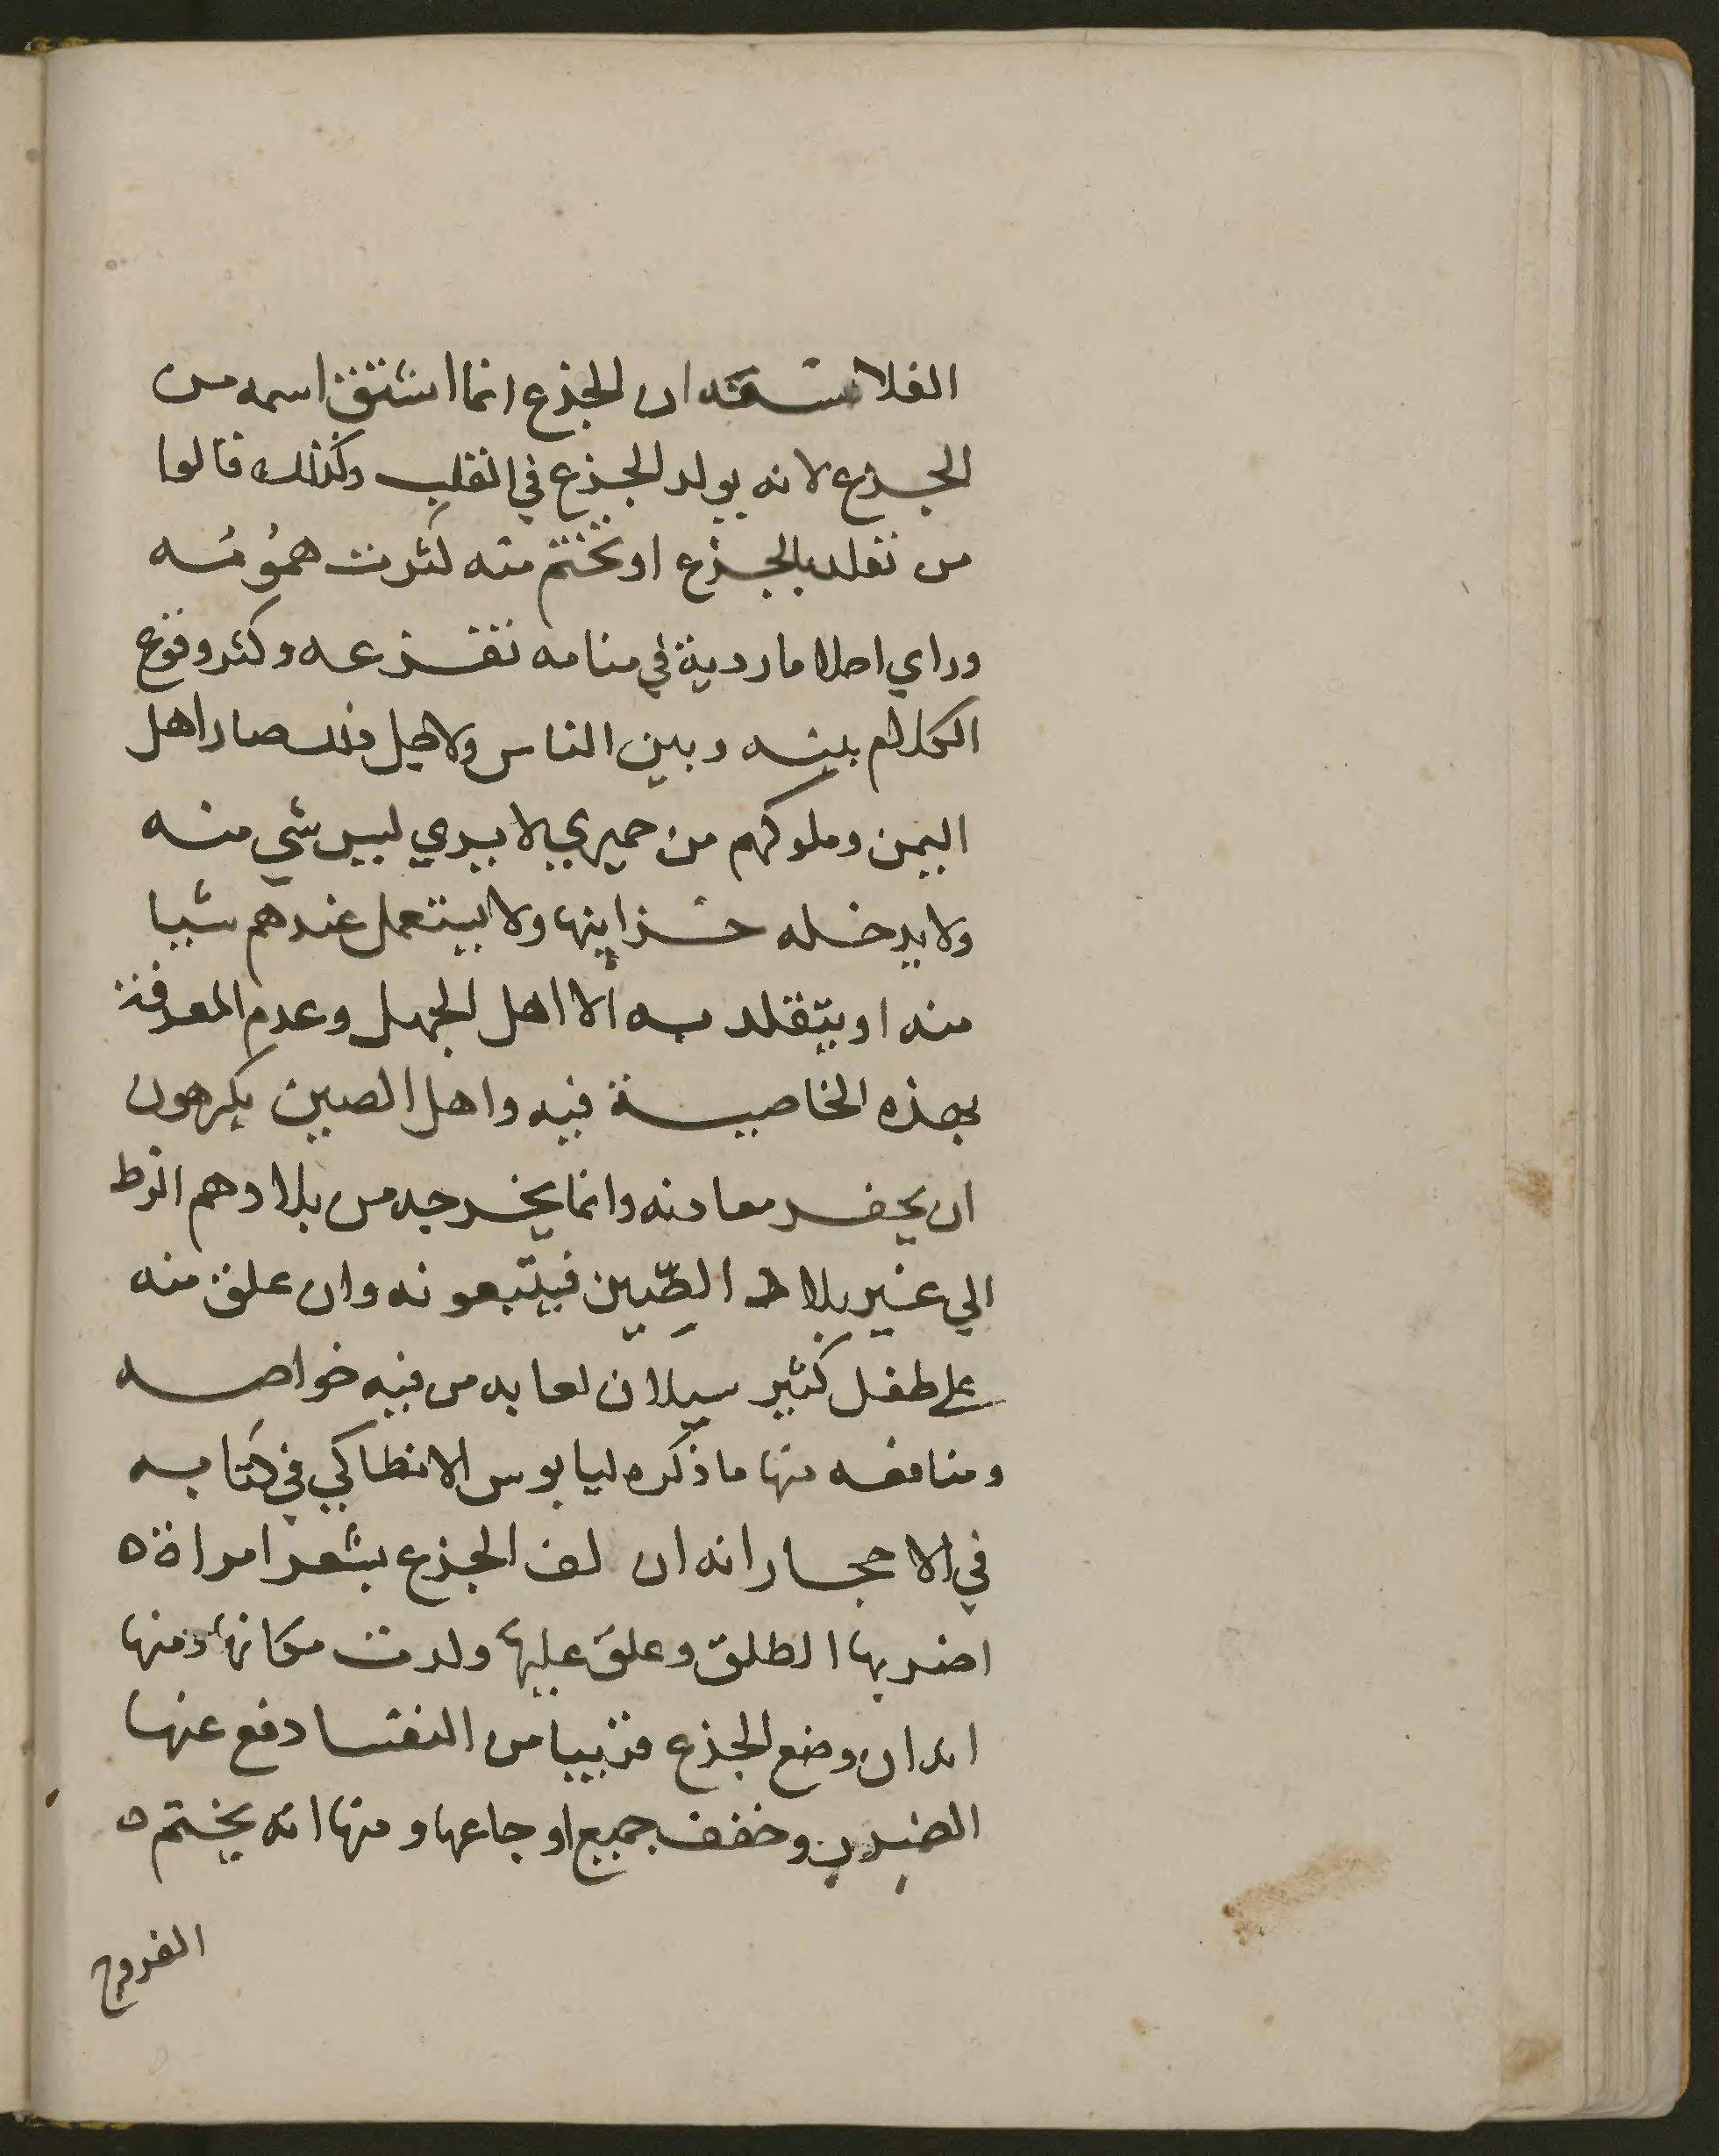 الفلاسفه ان الجذع انما اشتق اسمه من
الجذع لانه يولد الجذع في القلب وكذلك قالوا
من تقلد بالجذع او تختم منه كثرت همومه
وراي احلاما ردية في منامه تفزعه وكثر وقوع
الكلام بينه وبين الناس ولاجل ذلك صار اهل
اليمن وملوكهم من حميري لا يري لبس شي منه
ولا يدخله خزاينها ولا يستعمل عندهم شيا
منه او يتقلد به الا اهل الجهل وعدم المعرفة
بهذه الخاصية فيه واهل الصين يكرهون
ان يحفر معادنه وانما يخرجه من بلادهم الزط
الي غير بلاد الصين فيتبعونه وان علق منه
علي طفل كثير سيلان لعابه من فيه خواصه
ومنافعه منها ما ذكره ليابوس الانطاكي في كتابه
في الاحجار انه ان لف الجذع بشعر امراة ه
اضربها الطلق وعلق عليها ولدت مكانها ومنها
انه ان وضع الجذع قريبا من النفسا دفع عنها
الضرب وخفف جميع اوجاعها ومنها انه يختم ه
الفروج